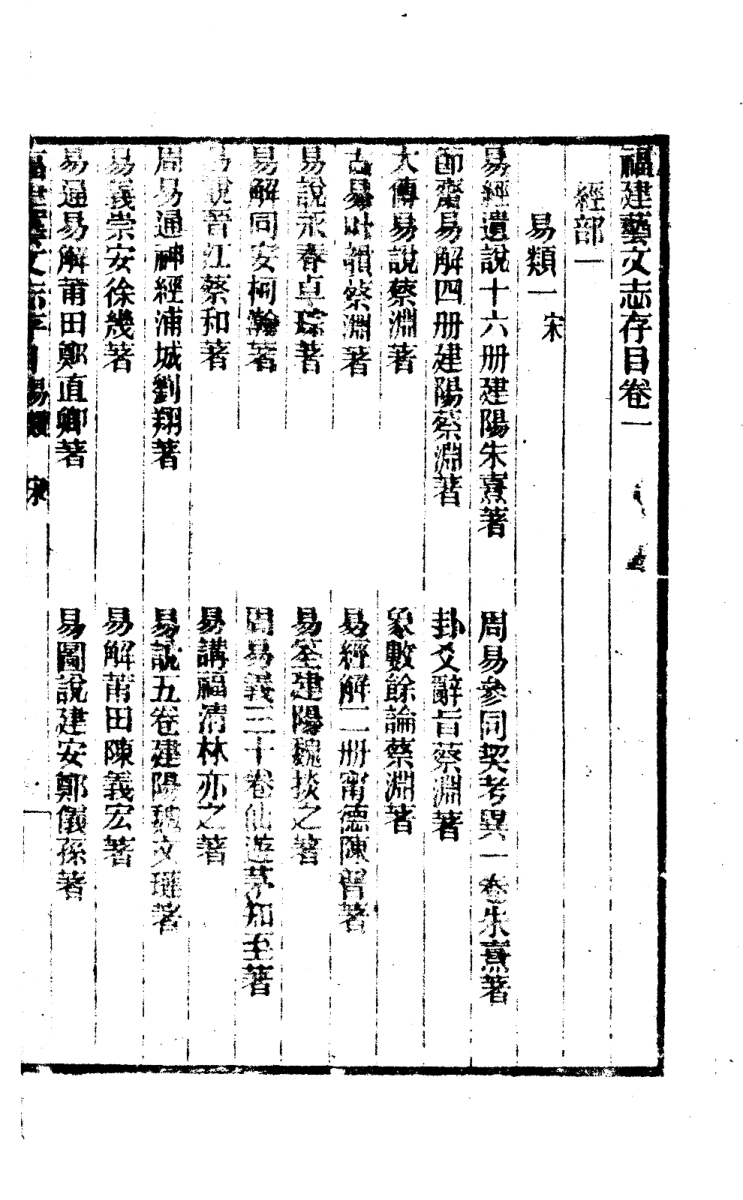 福建藝文志存目卷一
經部一
易類一 宋
易經遺說十六册建陽朱熹著 周易參同契考異一卷朱熹著
節齋易解四册建陽蔡淵著 卦爻辭旨蔡淵著
大傳易說蔡淵著 象數餘論蔡淵著
古易叶韻蔡淵著 易經解二册甯德陳普著
易說永春卓琮著 易筌建陽魏掞之著
易解同安柯瀚著 周易義三十卷仙遊茅知至著
易說晉江蔡和著 易講福清林亦之著
周易通神經浦城劉翔著 易說五卷建陽魏文著
易義崇安徐幾著 易解莆田陳義宏著
易通易解莆田鄭直卿著 易圖說建安鄭儀孫著
福建藝文志存目易類 宋 一